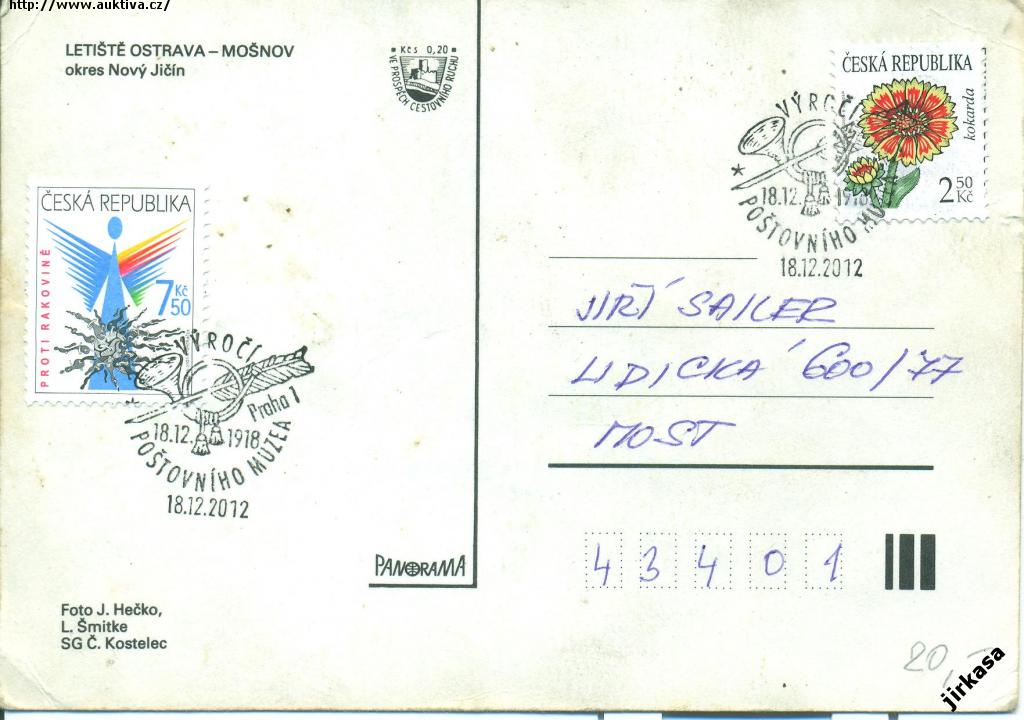 http://www.auktiva.cz/
LETIŠTĚ OSTRAVA – MOŠNOV
okres Nový Jičín
Kčs 0,20
VE PROSPĚCH CESTOVNÍHO RUCHU
ČESKÁ REPUBLIKA
kokarda
2 50 Kč
VÝROČÍ
18.12. 1918
POŠTOVNÍHO MUZEA
18.12.2012
ČESKÁ REPUBLIKA
PROTI RAKOVINĚ
7 Kč 50
VÝROČÍ
Praha 1
18.12. 1918
POŠTOVNÍHO MUZEA
18.12.2012
JIŘÍ SAILER
LIDICKÁ 600/77
MOST
43401
PANORAMA
Foto J. Hečko,
L. Šmitke
SG Č. Kostelec
20,-
jirkasa